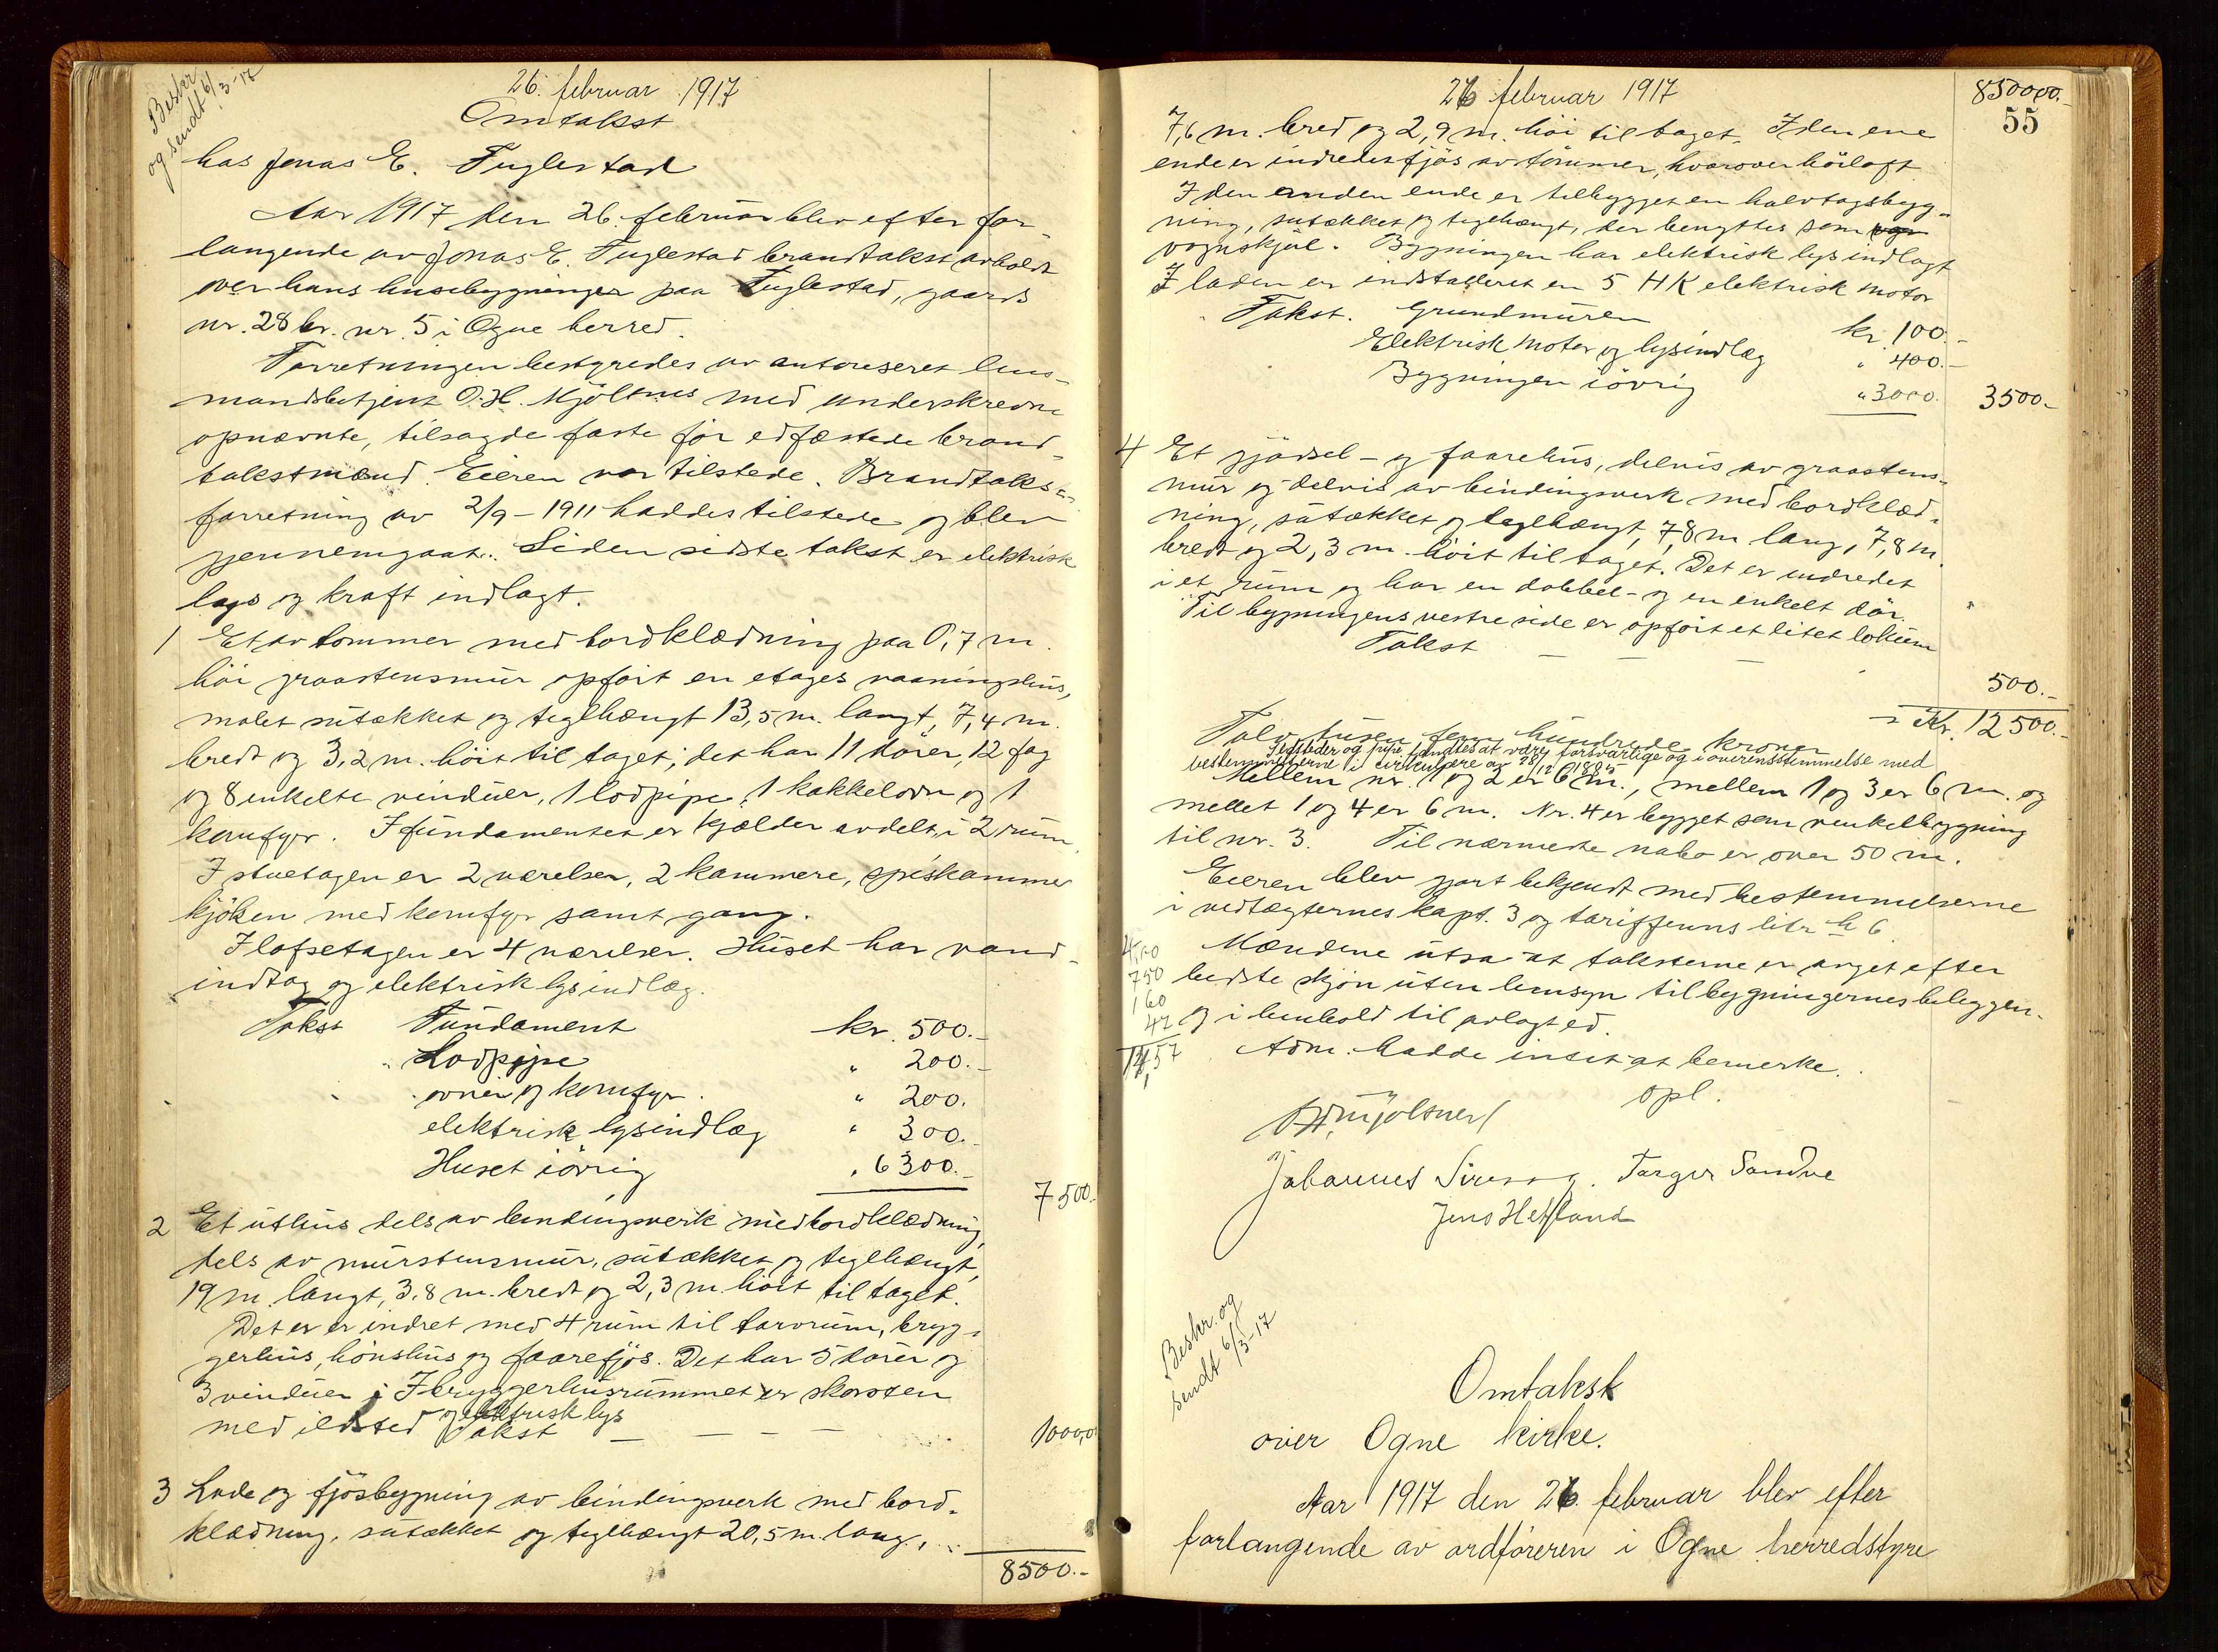 Beskr
og sendt 6/3-17
26. februar 1917
Omtakst
hos Jonas E. Fuglestad
Aar 1917 den 26. februar blev efter for-
langende av Jonas E. Fuglestad brandtakst avholdt
over hans husebygninger paa Fuglestad, gaards
nr. 28 br. nr. 5 i Ogne herred.
Forretningen bestyredes av autoriseret lens-
mandsbetjent O. H. Mjölsnes med underskrevne
opnævnte, tilsagde faste för edfæstede brand-
takstmænd. Eieren var tilstede. Brandtakst-
forretning av 2/9-1911 haddes tilstede og blev
gjennemgaat. Siden sidste takst er elektrisk
lys og kraft indlagt.
1 Et av tömmer med bordklædning paa 0,7 m.
höi graastensmur opfört en etages vaaningshus,
malet sutækket og teglhængt 13,5 m. langt, 7,4 m.
bredt og 3,2 m. höit til taget; det har 11 dörer, 12 fag
og 8 enkelte vinduer, 1 lodpipe, 1 kakkelovn og 1
komfyr. I fundamentet er kjælder avdelt i 2 rum.
I stuetagen er 2 værelser, 2 kammere, spiskammer
kjöken med komfyr samt gang.
I loftsetagen er 4 værelser. Huset har vand-
indtag og elektrisk lysindlæg.
Takst Fundament kr. 500.-
" Lodpipe " 200.-
ovner og komfyr " 200.
elektrisk lysindlæg " 300.-
Huset iövrig " 6300.-
7500.-
2 Et uthus dels av bindingsverk med bordklædning,
dels av murstensmur, sutækket og teglhængt,
19 m. langt, 3,8 m. bredt og 2,3 m. höit til taget.
Det er er indret med 4 rum til torvrum, bryg-
gerhus, hönshus og faarefjös. Det har 5 dörer og
3 vinduer. I bryggerhusrummet er skorsten
med ildsted og elektrisk lys
Takst - - - - 1000,00
3 Lade og fjösbygning av bindingsverk med bord-
klædning, sutækket og teglhængt 20,5 m. lang,
8500.-
26 februar 1917
8500,00.-
55
7,6 m. bred og 2,9 m. höi til taget. I den ene
ende er indredet fjös av tömmer, hvorover höiloft
I den anden ende er tilbygget en halvtagsbyg-
ning, sutækket og teglhængt, der benyttes som
vognskjul. Bygningen har elektrisk lys indlagt
I laden er indstalleret en 5 HK elektrisk motor
Takst. Grundmuren kr. 100.-
Elektrisk motor og lysindlæg " 400.-
Bygningen iövrig " 3000. 3500.-
4 Et gjödsel- og faarehus, delvis av graastens-
mur og delvis av bindingsverk med bordklæd-
ning, sutækket og teglhængt, 7,8 m lang, 7,8 m.
bredt og 2,3 m. höit til taget. Det er indredet
i et rum og har en dobbel- og en enkelt dör.
Til bygningens vestre side er opfört et litet lokum
Takst - - -
500.-
= Kr. 12500.-
Tolv tusen fem hundrede kroner
Ildsteder og pipe fandtes at være forsvarlige og i overensstemmelse med
bestemmelserne i cirkulære av 28/12 1895
Mellem nr. 1 og 2 er 6 m., mellem 1 og 3 er 6 m. og
mellet 1 og 4 er 6 m. Nr. 4 er bygget som vinkelbygning
til nr. 3. Til nærmeste nabo er over 50 m.
Eieren blev gjort bekjendt med bestemmelserne
i vedtægternes kapt. 3 og tariffenns litr h 6.
4,00
750
160
47
14,57
Mændene utsa at taksterne er avget efter
bedste skjön uten hensyn til bygningernes beliggen-
og i henhold til avlagt ed.
Adm. hadde intet at bemerke.
opl.
OHMjölsnes
Johannes Sirevaag. Torger Sandve
Jens Hetland
Beskr. og
sendt 6/3-17
Omtakst
over Ogne kirke.
Aar 1917 den 26. februar blev efter
forlangende av ordföreren i Ogne herredstyre